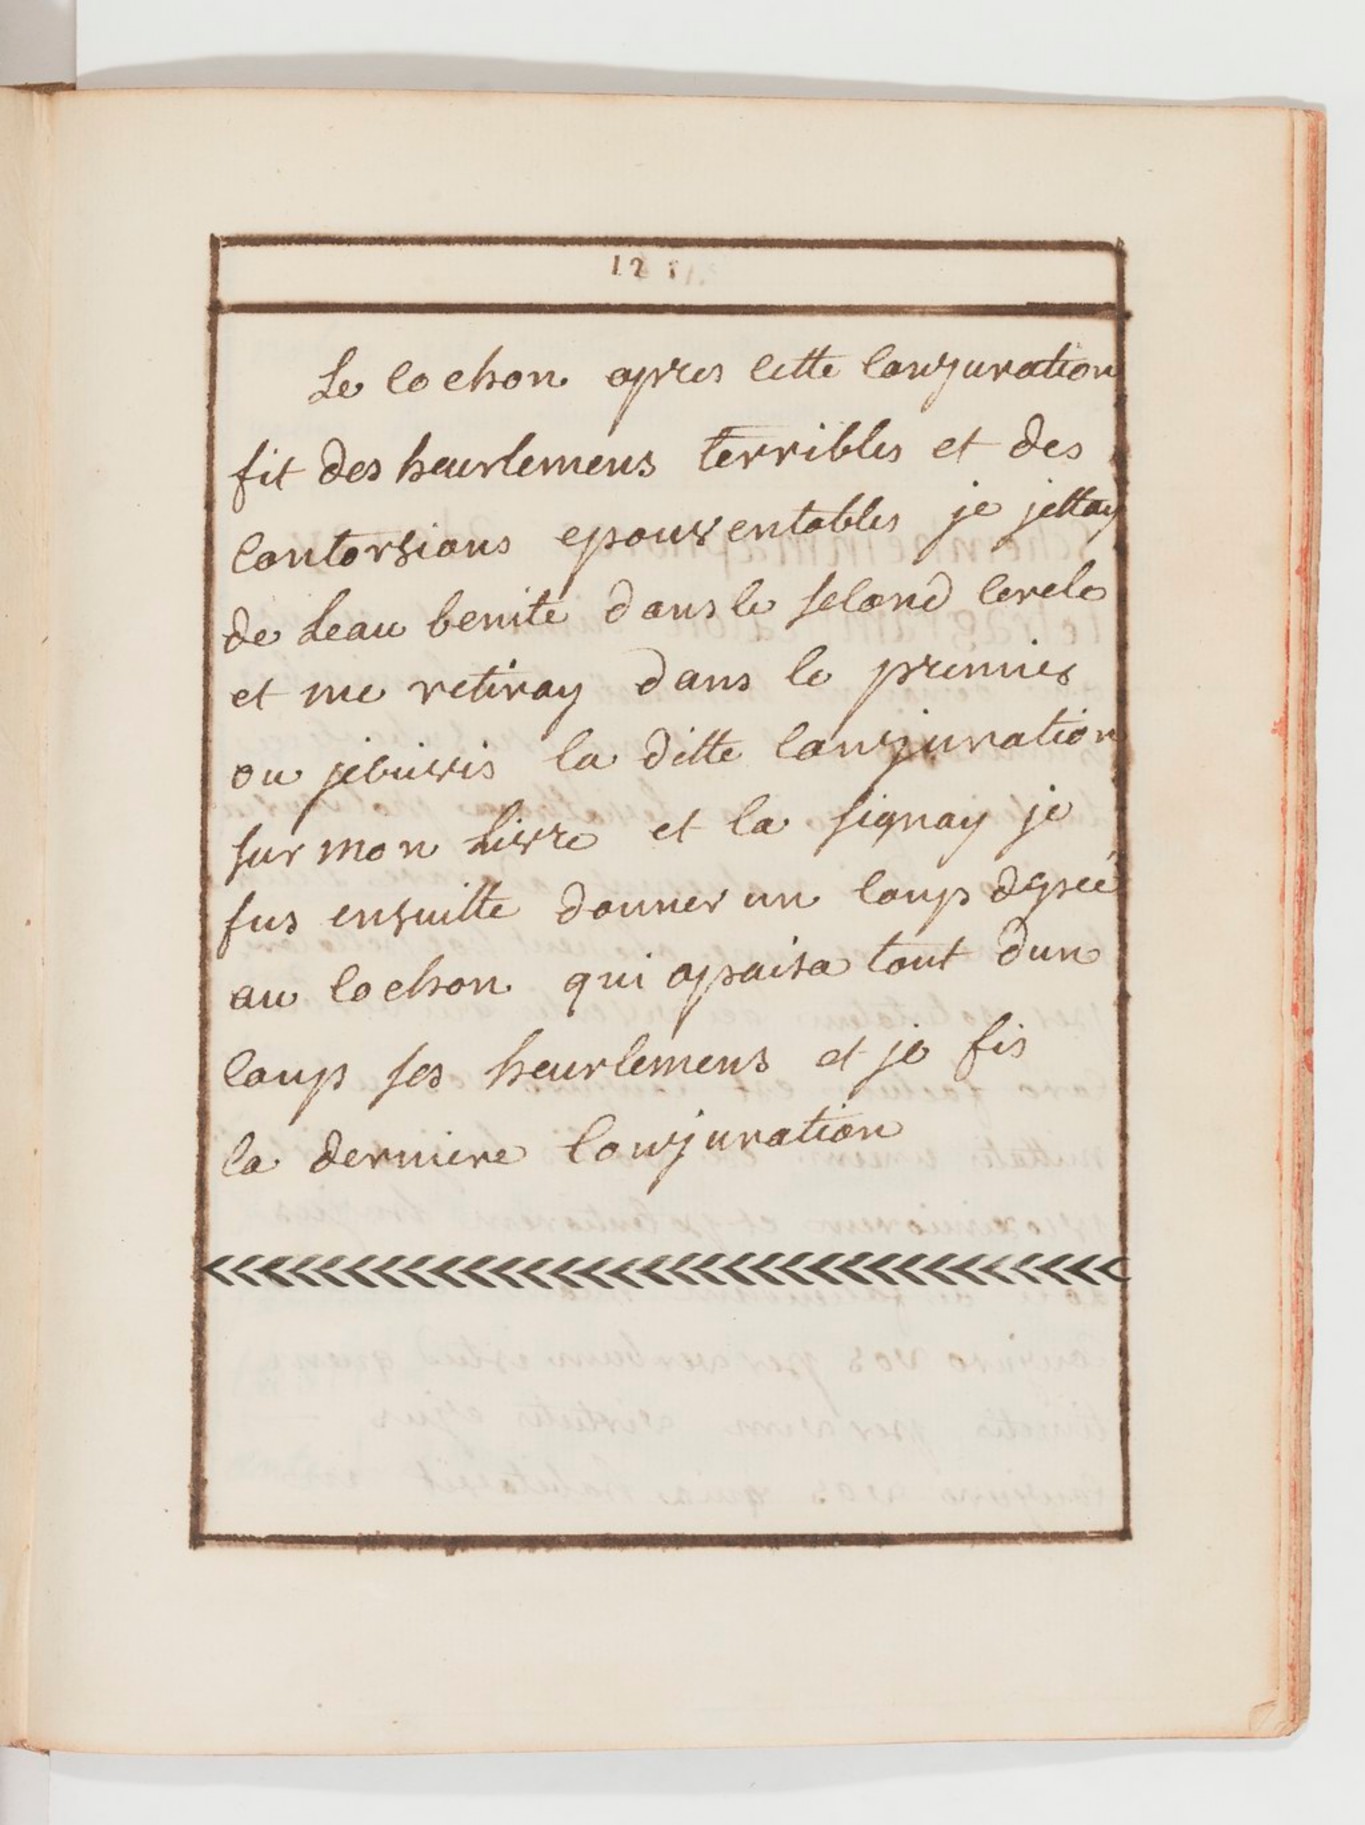 12
Le cochon apres cette conjuration
fit des heurlemens terribles et des
contorsions epouventables je jettay
de Leau benite dans le second cercle
et me retiray dans le premier
ou jecrivis la ditte conjuration
sur mon Livre et la signay je
fus ensuitte donner un coup depée
au cochon qui apaisa tout dun
coup ses heurlemens et je fis
la derniere conjuration